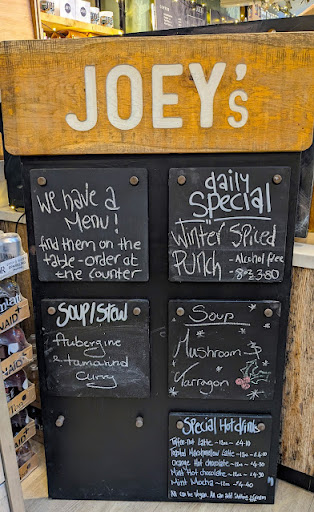 JOEY's
We have a
Menu!
find them on the
table - order at
the counter
daily
Special
Winter Spiced
Punch - Alcohol free
- 8oz 3.80
Soup/Stew
Aubergine
& tamarind
Curry
Soup
Mushroom &
Tarragon
Special Hot drinks
Toffee-nut Latte - 12oz - £4.10
Toasted Marshmallow Latte - 12oz - £4.10
Orange Hot chocolate - 12oz - £4.30
Mint Hot chocolate - 12oz - £4.30
Mint Mocha - 12oz - £4.60
All can be vegan. All can add